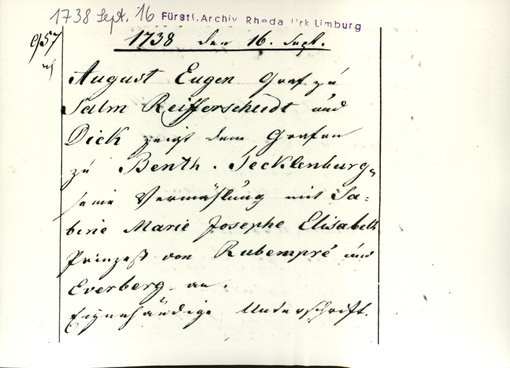 1738 Sept. 16 Fürstl. Archiv Rheda Urk Limburg
957
1738 den 16. Sept.
August Eugen Graf zu
Salm Reifferscheidt und
Dick zeigt dem Grafen
zu Benth. Tecklenburg
seine Vermählung mit Sa-
berie Marie Josephe Elisabeth
Prinzeß von Rubempré und
Everberg an.
Eigenhändige Unterschrift.